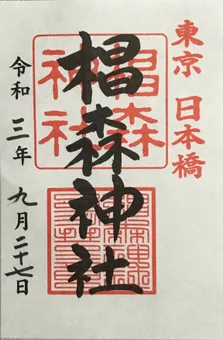 東京 日本橋
椙森神社
椙森
神社
令和三年 九月二十七日